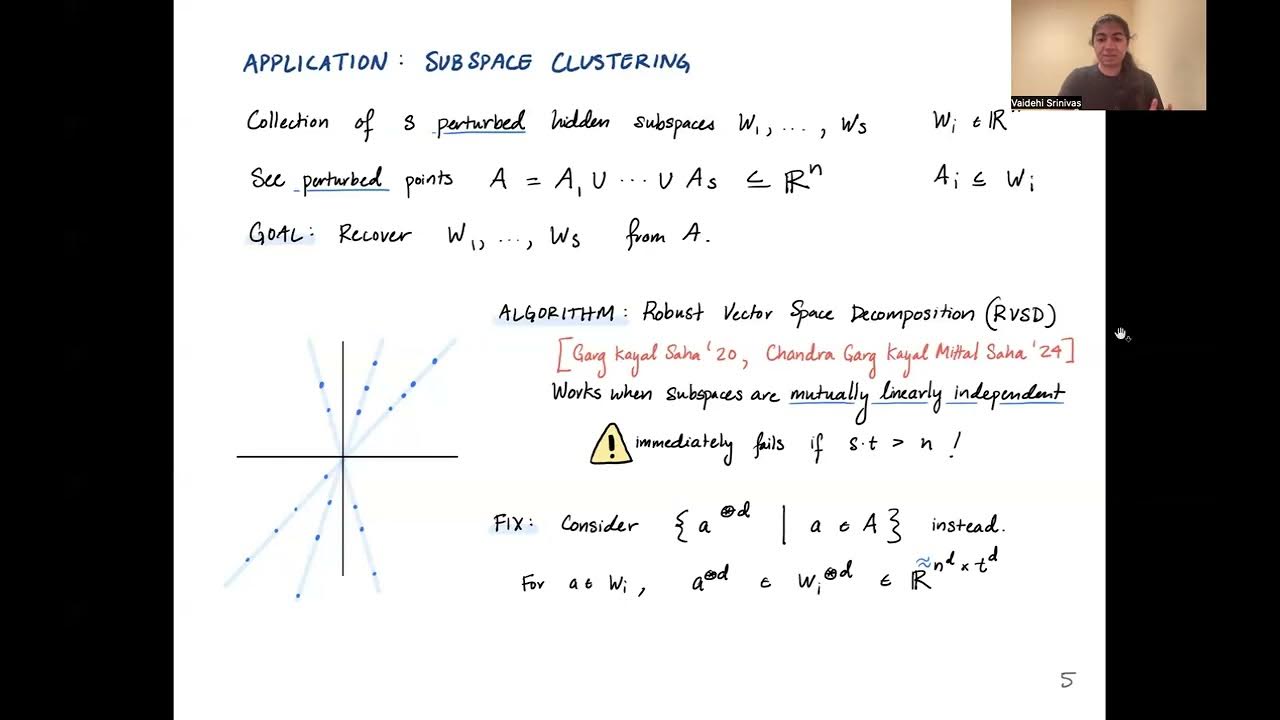 APPLICATION: SUBSPACE CLUSTERING
Vaidehi Srinivas
Collection of s perturbed hidden subspaces W₁, ..., Wₛ Wᵢ ∈ ℝ
See perturbed points A = A₁ ∪ ··· ∪ Aₛ ⊆ ℝⁿ Aᵢ ⊆ Wᵢ
GOAL: Recover W₁, ..., Wₛ from A.
ALGORITHM: Robust Vector Space Decomposition (RVSD)
[Garg Kayal Saha '20, Chandra Garg Kayal Mittal Saha '24]
Works when subspaces are mutually linearly independent
! immediately fails if s·t > n !
FIX: Consider { a^⊛d | a ∈ A } instead.
For a ∈ Wᵢ, a^⊛d ∈ Wᵢ^⊛d ∈ ℝ^≈n^d × t^d
5